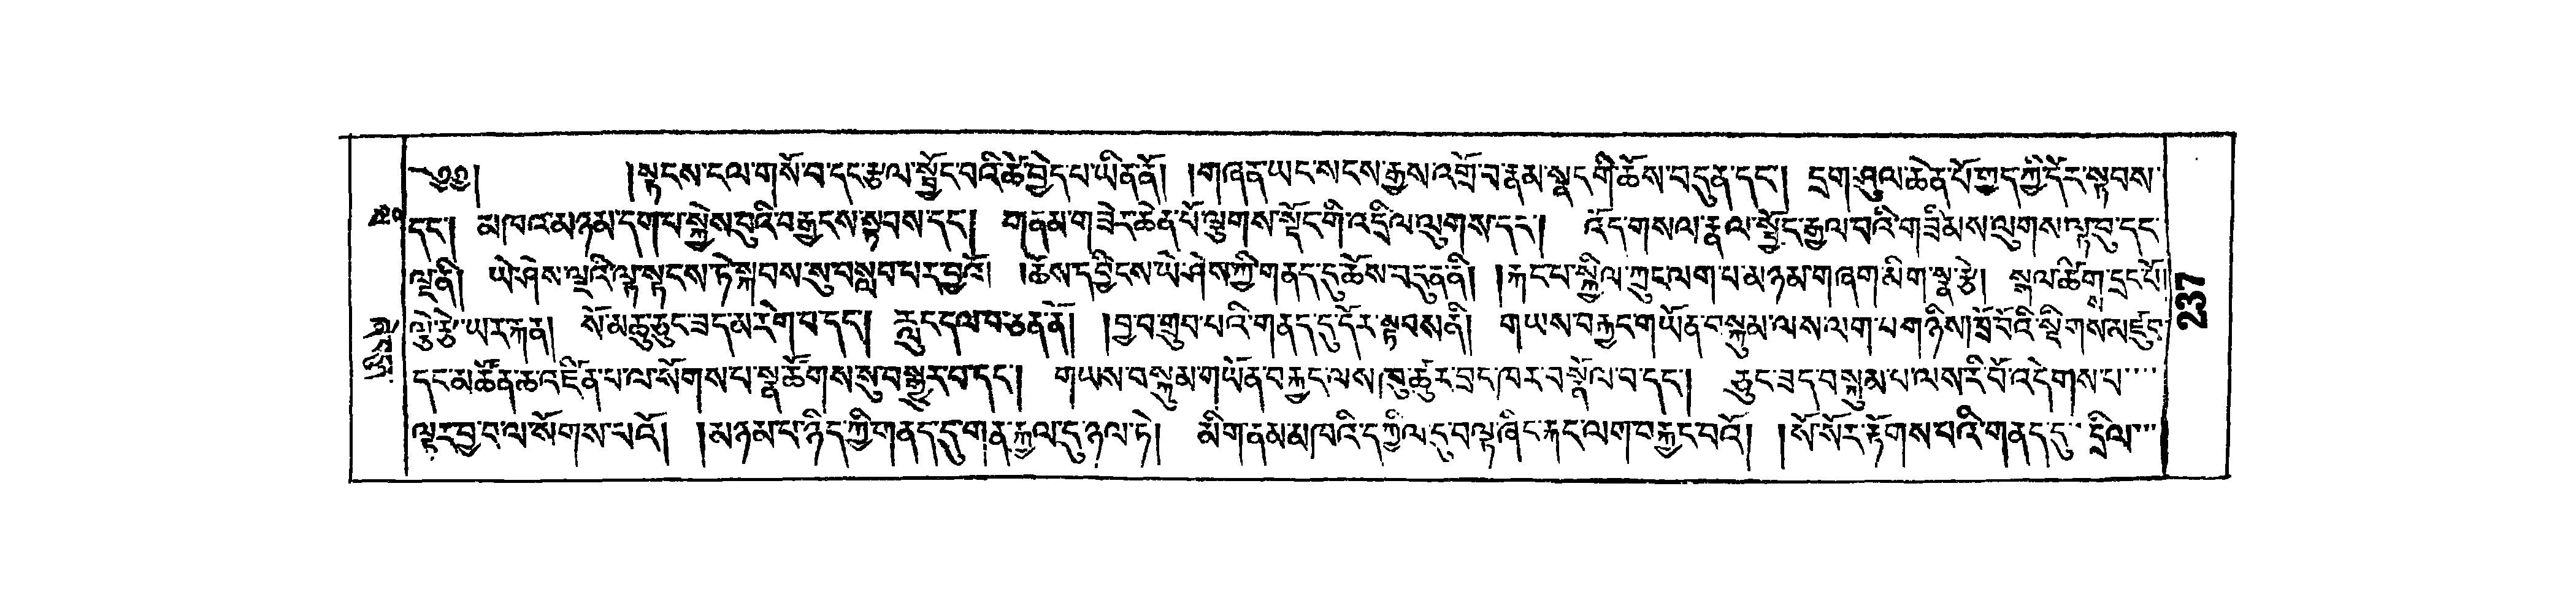 ༄༅། །སྟངས་དལ་གསོ་བ་དང་རྩལ་སྦྱོང་བའི་ཚེ་བྱེད་པ་ཡིན་ནོ། །གཞན་ཡང་སངས་རྒྱས་འགྲོ་བ་རྣམ་སྣང་གི་ཆོས་བདུན་དང་། དྲག་ཤུལ་ཆེན་པོ་ཀྱད་ཀྱི་དོར་སྟབས་
དང་། མཁའ་མཉམ་དགཔ་སྐྱེས་བུའི་བརྒྱངས་སྟབས་དང་། གནམ་གཟེར་ཆེན་པོ་ལྕུགས་སྡོང་གི་འདྲིལ་ལུགས་དང་། འོད་གསལ་རྣལ་སྦྱོང་རྒྱལ་བའི་གཟིམས་ལུགས་ལྟ་བུ་དང་
ལྔ་ནི། ཡེ་ཤེས་ལྔའི་ལྟ་སྟངས་ཏེ་སྐབས་སུ་བསླབ་པར་བྱའོ། །ཆོས་དབྱིངས་ཡེ་ཤེས་ཀྱི་གནད་དུ་ཆོས་བདུན་ནི། །རྐང་པ་སྐྱིལ་ཀྲུང་ལག་པ་མཉམ་གཞག་མིག་སྣ་རྩེ། སྒལ་ཚིག་དྲང་པོ།
ལྕེ་རྩེ་ཡར་རྐན། སོ་མཆུ་ཅུང་ཟད་མ་རེག་པ་དང་། རླུང་དལ་བ་ཅན་ནོ། །བྱ་བ་གྲུབ་པའི་གནད་དུ་དོར་སྟབས་ནི། གཡས་བརྐྱང་གཡོན་བསྐུམ་ལས་ལག་པ་གཉིས་ཁྲོ་བོའི་སྡིགས་མཛུབ་
དང་མཚོན་ཆ་འཛིན་པ་ལ་སོགས་པ་སྣ་ཚོགས་སུ་བསྒྱུར་བ་དང་། གཡས་བསྐུམ་གཡོན་བརྐྱང་ལས་ཁུ་ཚུར་བྲང་ཁར་བསྣོལ་བ་དང་། ཅུང་ཟད་བསྐུམ་པ་ལས་རི་བོ་འདེགས་པ་
ལྟར་བྱ་བ་ལ་སོགས་པའོ། །མཉམ་པ་ཉིད་ཀྱི་གནད་དུ་གན་རྐྱལ་དུ་ཉལ་ཏེ། མིག་ནམ་མཁའི་དཀྱིལ་དུ་བལྟ་ཞིང་རྐང་ལག་བརྐྱང་བའོ། །སོ་སོར་རྟོགས་པའི་གནད་དུ་དྲིལ་